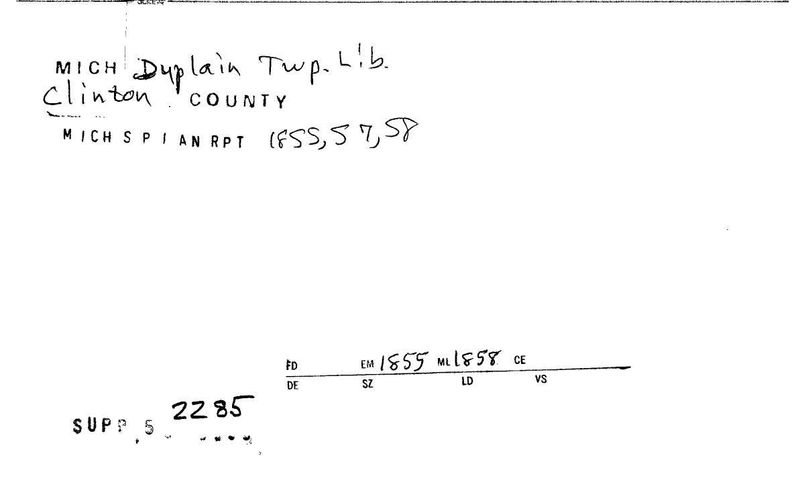 MICH Duplain Twp. Lib.
Clinton COUNTY
MICH S P I AN RPT 1855, 57, 58
FD EM 1855 ML 1858 CE
DE SZ LD VS
SUPP. 5 2285